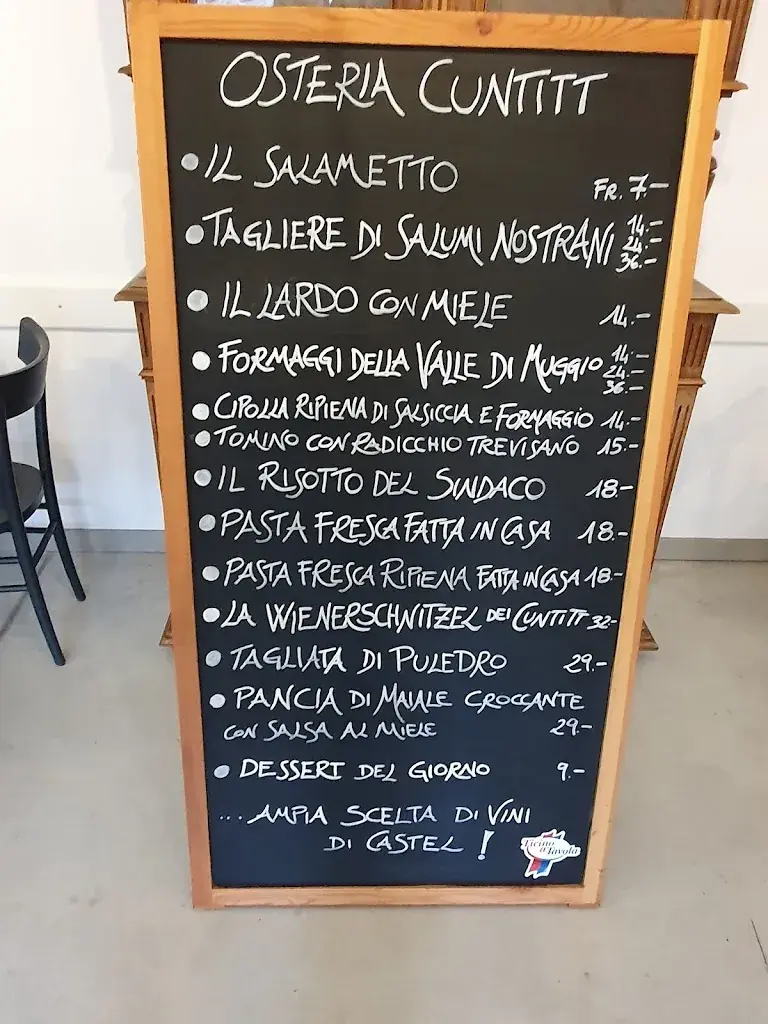 OSTERIA CUNTITT
• IL SALAMETTO FR. 7.-
• TAGLIERE DI SALUMI NOSTRANI 14.- 24.- 36.-
• IL LARDO CON MIELE 14.-
• FORMAGGI DELLA VALLE DI MUGGIO 14.- 24.- 36.-
• CIPOLLA RIPIENA DI SALSICCIA E FORMAGGIO 14.-
• TOMINO CON RADICCHIO TREVISANO 15.-
• IL RISOTTO DEL SINDACO 18.-
• PASTA FRESCA FATTA IN CASA 18.-
• PASTA FRESCA RIPIENA FATTA IN CASA 18.-
• LA WIENERSCHNITZEL DEI CUNTITT 32.-
• TAGLIATA DI PULEDRO 29.-
• PANCIA DI MAIALE CROCCANTE
CON SALSA AL MIELE 29.-
• DESSERT DEL GIORNO 9.-
...AMPIA SCELTA DI VINI
DI CASTEL!
Ticino
a Tavola